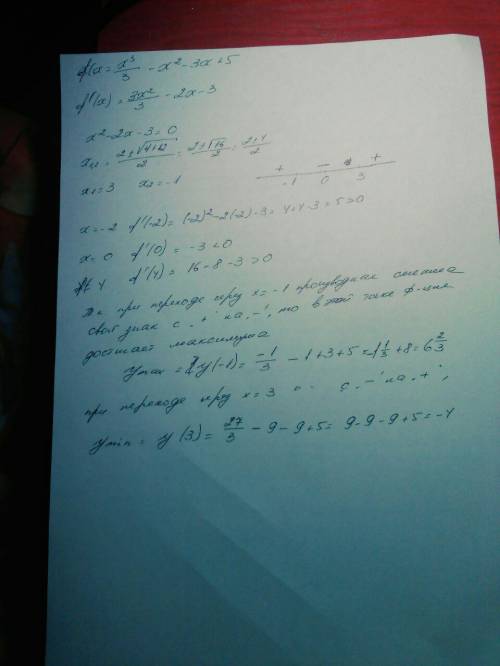 f(x = x³/3 - x² - 3x + 5
f'(x) = 3x²/3 - 2x - 3
x² - 2x - 3 = 0
x₁,₂ = 2±√4+12/2 = 2±√16/2 = 2±4/2
x₁ = 3 x₂ = -1
+ - +
-1 0 3
x = -2 f'(-2) = (-2)² - 2(-2) - 3 = 4+4-3 = 5 > 0
x = 0 f'(0) = -3 < 0
4 f'(4) = 16 - 8 - 3 > 0
т.к при переходе через x = -1 производная сменила
свой знак с „+" на „-", то в этой точке ф-ция
достигает максимума
y max = y(-1) = -1/3 - 1 + 3 + 5 = -1 1/3 + 8 = 6 2/3
при переходе через x = 3 с „-" на „+",
y min = y(3) = 27/3 - 9 - 9 + 5 = 9 - 9 - 9 + 5 = -4